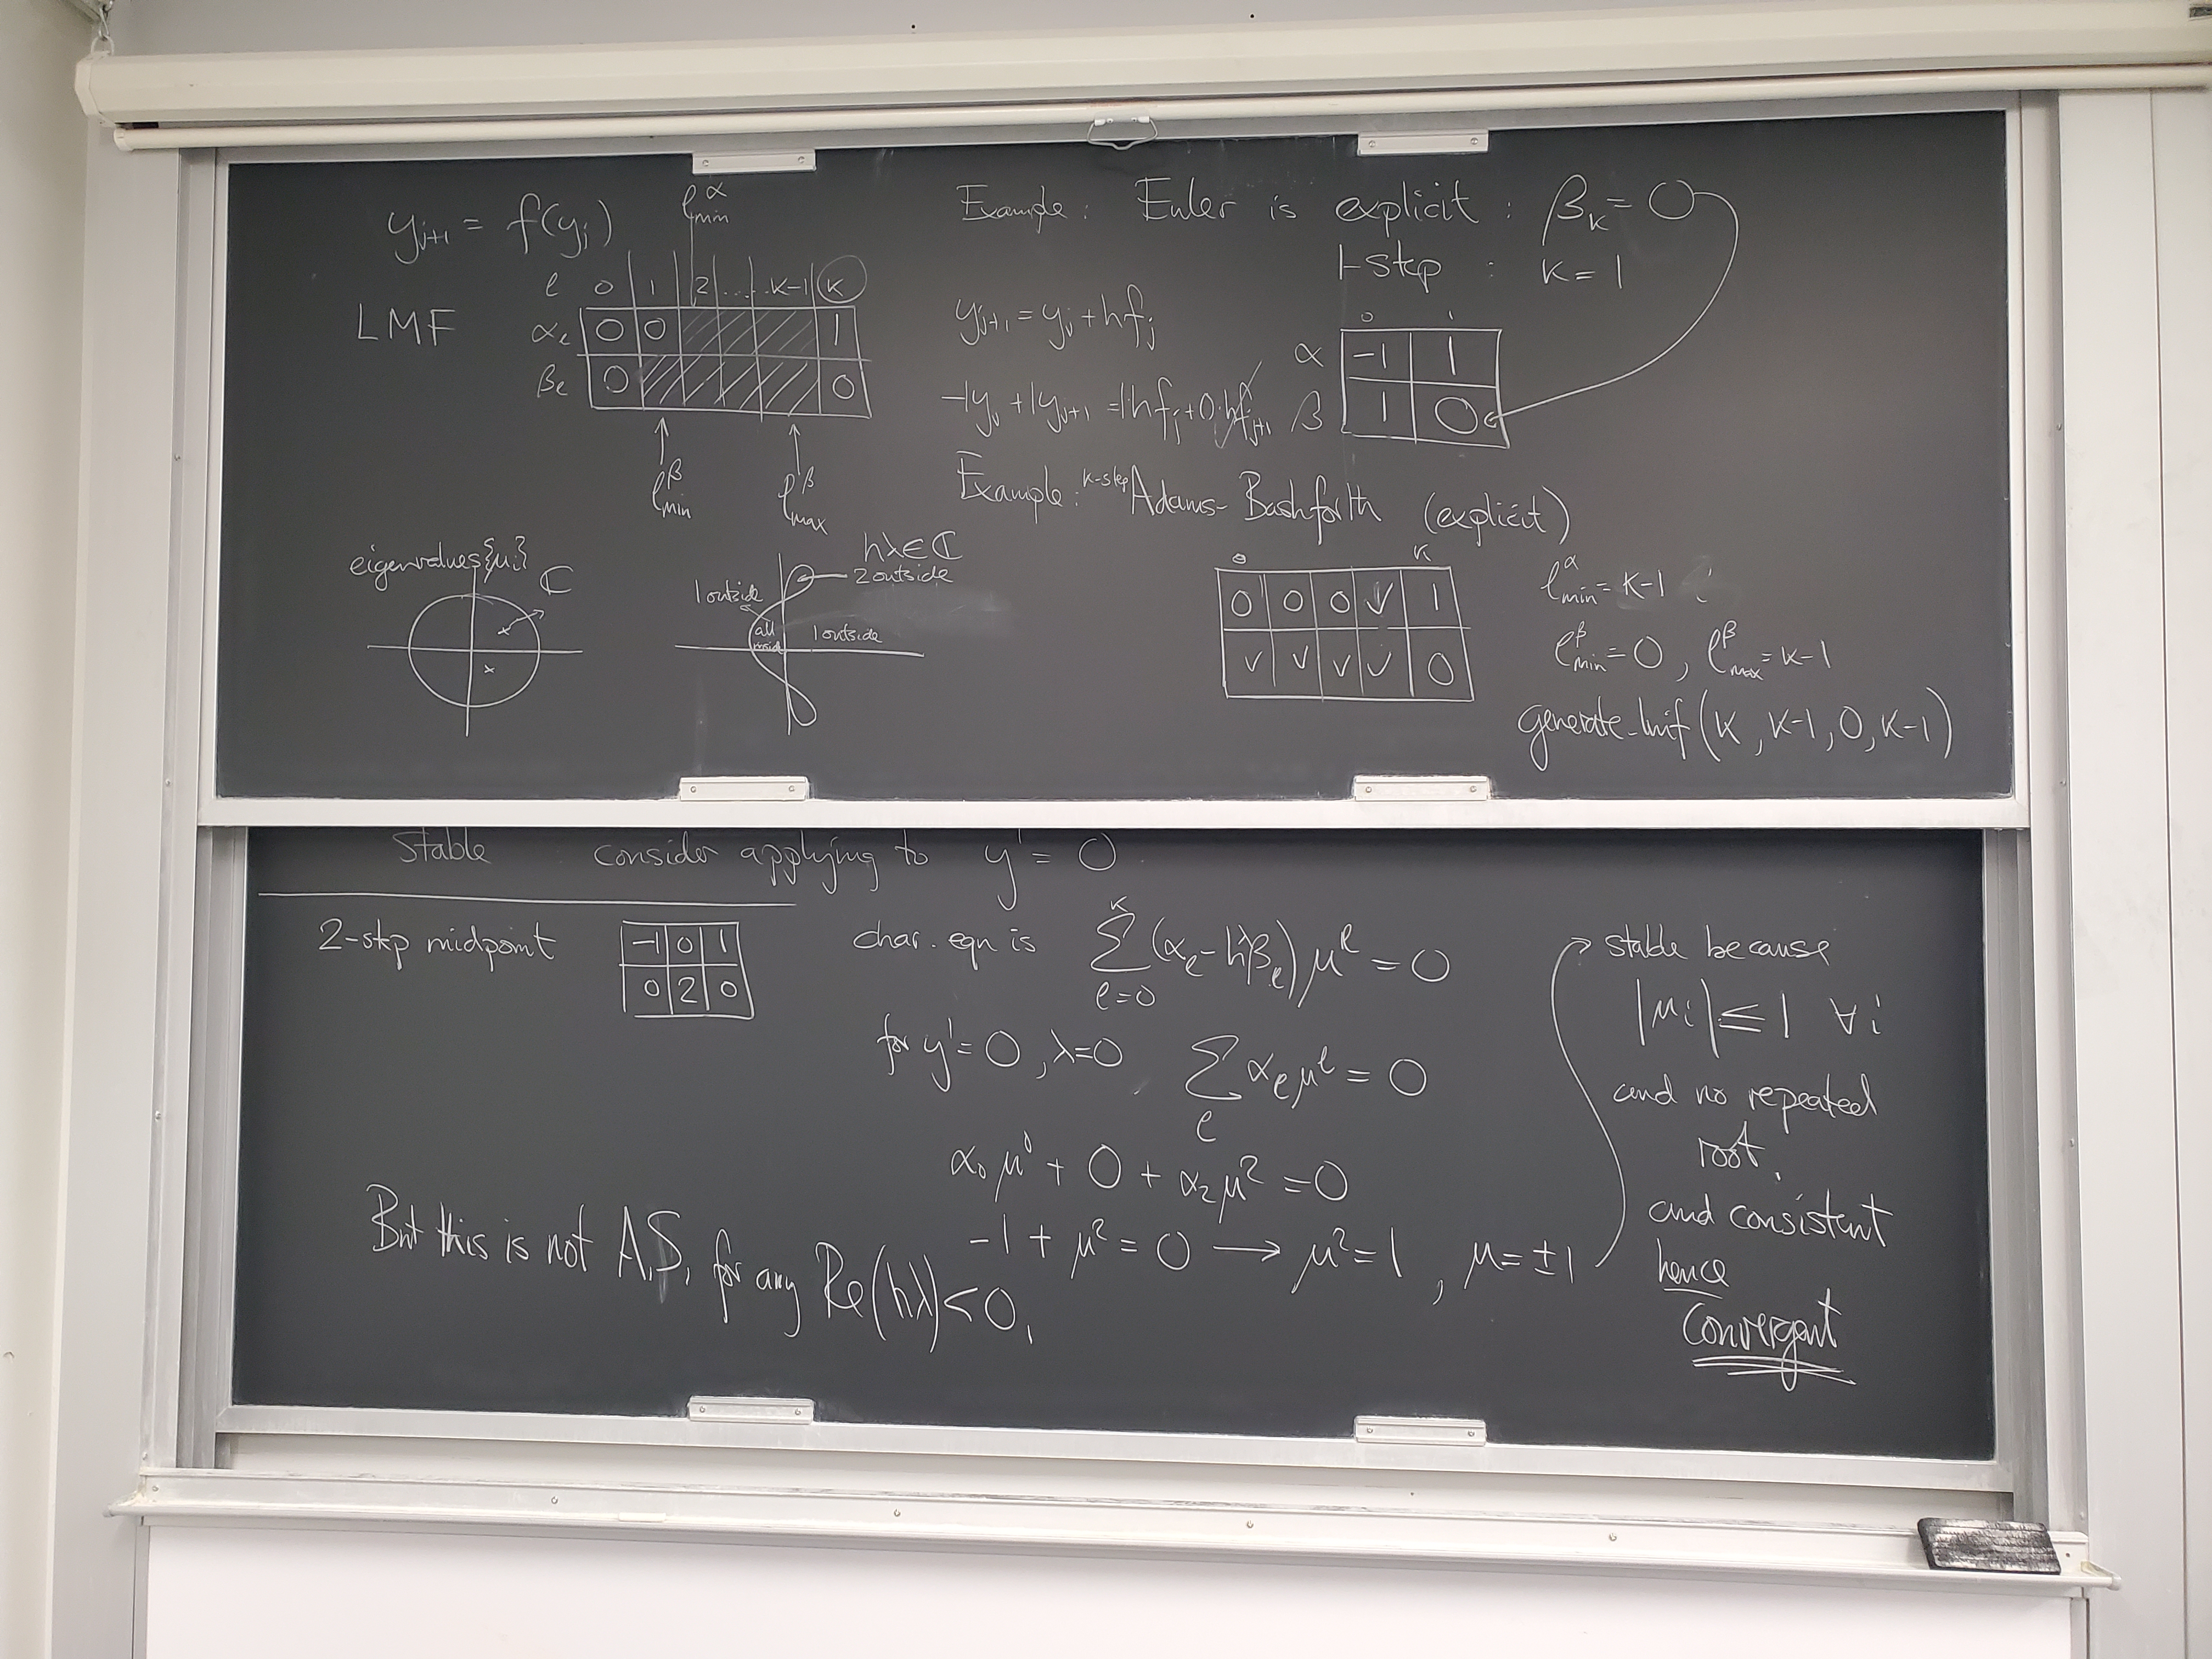 y_{j+1} = f(y_j)
ℓ^α_min
ℓ 0 1 2 ..... K-1 K
LMF
α_ℓ 0 0 1
β_ℓ 0 0
ℓ^β_min ℓ^β_max
eigenvalues {μ_i}
ℂ
hλ∈ℂ
2 outside
1 outside
all inside
1 outside
Example: Euler is explicit : β_K = 0
1-step : K = 1
y_{j+1} = y_j + hf_j
-1y_j + 1y_{j+1} = 1hf_j + 0·hf_{j+1}
0 1
α -1 1
β 1 0
Example: K-step Adams-Bashforth (explicit)
0 K
0 0 0 ✓ 1
✓ ✓ ✓ ✓ 0
ℓ^α_min = K-1
ℓ^β_min = 0, ℓ^β_max = K-1
generate_lmf(K, K-1, 0, K-1)
Stable consider applying to y' = 0
2-step midpoint
-1 0 1
0 2 0
char. eqn is Σ_{ℓ=0}^{K} (α_ℓ - hλβ_ℓ) μ^ℓ = 0
for y' = 0, λ=0 Σ_ℓ α_ℓ μ^ℓ = 0
α_0 μ^0 + 0 + α_2 μ^2 = 0
-1 + μ^2 = 0 → μ^2 = 1, μ = ±1
But this is not A.S. for any Re(hλ)<0.
stable because
|μ_i| ≤ 1 ∀i
and no repeated
root.
and consistent
hence
Convergent